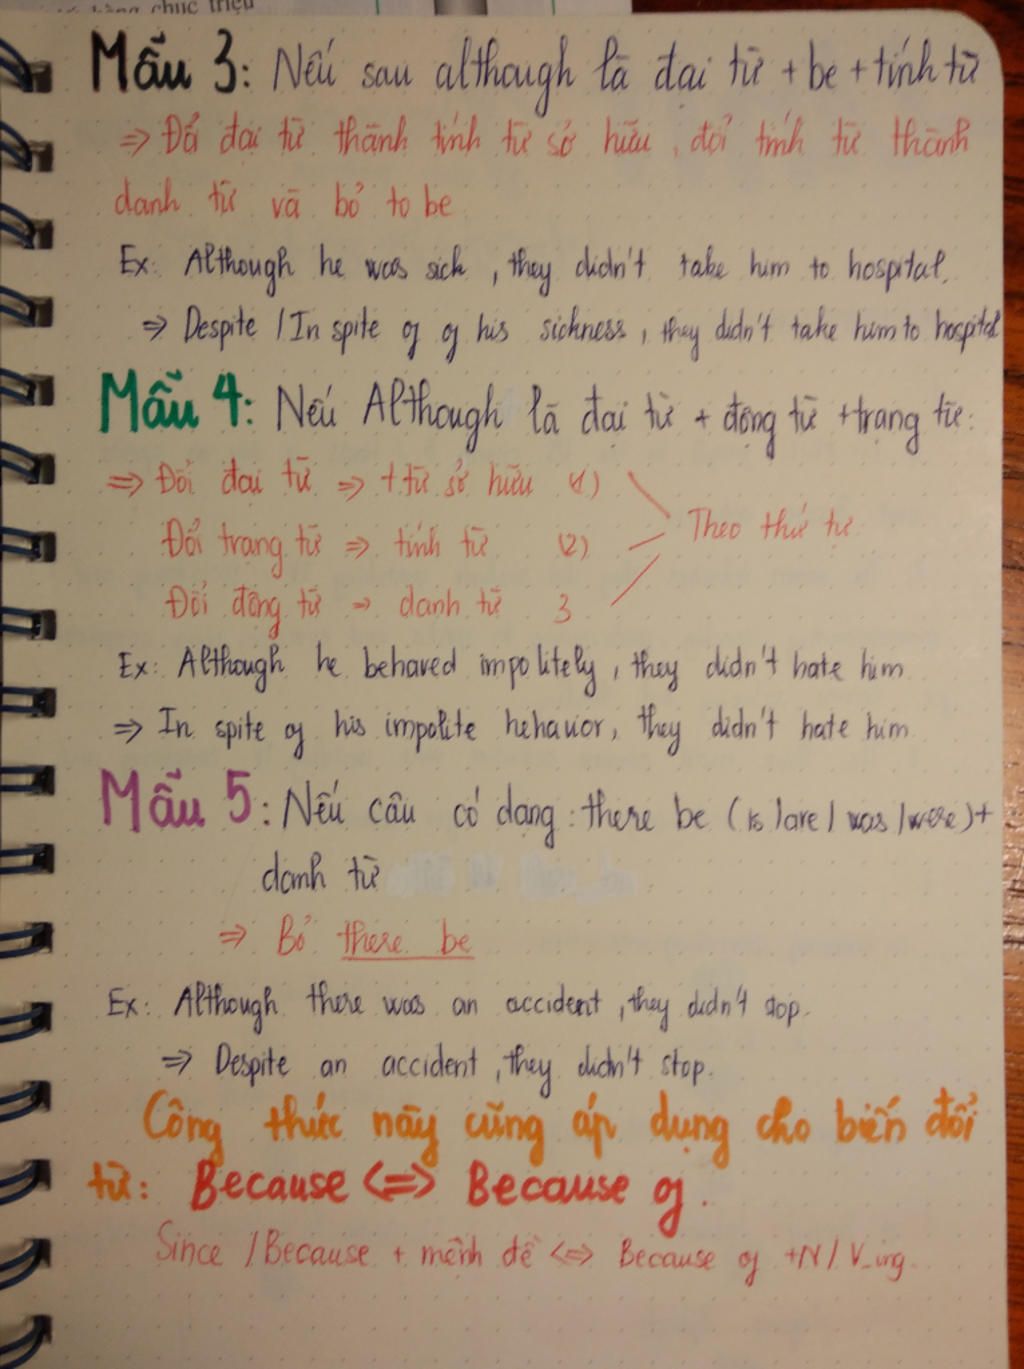 chục triệu
Mẫu 3: Nếu sau although là đại từ + be + tính từ
⇒ Đổi đại từ thành tính từ sở hữu, đổi tính từ thành
danh từ và bỏ to be
Ex: Although he was sick, they didn't take him to hospital.
⇒ Despite / In spite of of his sickness, they didn't take him to hospital
Mẫu 4: Nếu Although là đại từ + động từ + trạng từ:
⇒ Đổi đại từ ⇒ t.từ sở hữu (1)
Đổi trạng từ ⇒ tính từ (2)
Theo thứ tự
Đổi động từ ⇒ danh từ 3
Ex: Although he behaved impolitely, they didn't hate him
⇒ In spite of his impolite hehavior, they didn't hate him
Mẫu 5: Nếu câu có dạng: there be (is / are / was / were) +
danh từ
⇒ Bỏ there be
Ex: Although there was an accident, they didn't stop.
⇒ Despite an accident, they didn't stop.
Công thức này cũng áp dụng cho biến đổi
từ: Because <=> Because of.
Since / Because + mệnh đề <=> Because of + N / V_ing